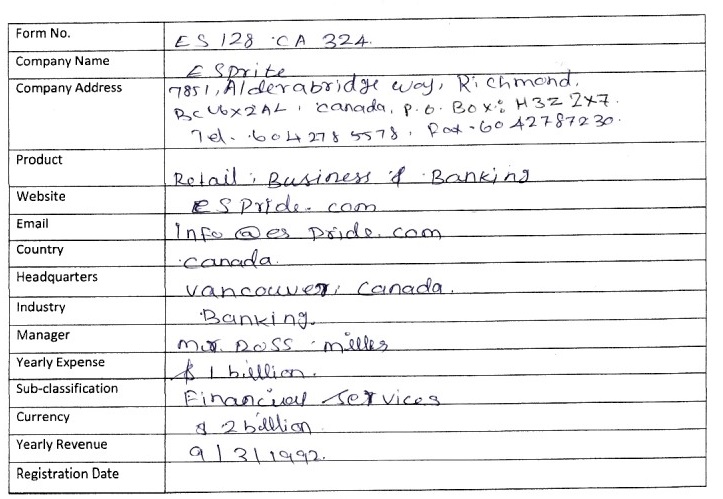 Form No. ES 128 CA 324.
Company Name ESprite
Company Address 7851, Alderabridge way, Richmond,
BC V6X2AL, Canada, P.O. Box: H3Z 2X7.
Tel. 604 278 5578, Fax - 60 42787230.
Product Retail, Business & Banking
Website esPride.com
Email Info@esPride.com
Country Canada.
Headquarters Vancouver, Canada.
Industry Banking.
Manager Mr. Ross Miller
Yearly Expense $ 1 billion.
Sub-classification Financial Services
Currency $ 2 billion
Yearly Revenue 9/3/1992.
Registration Date